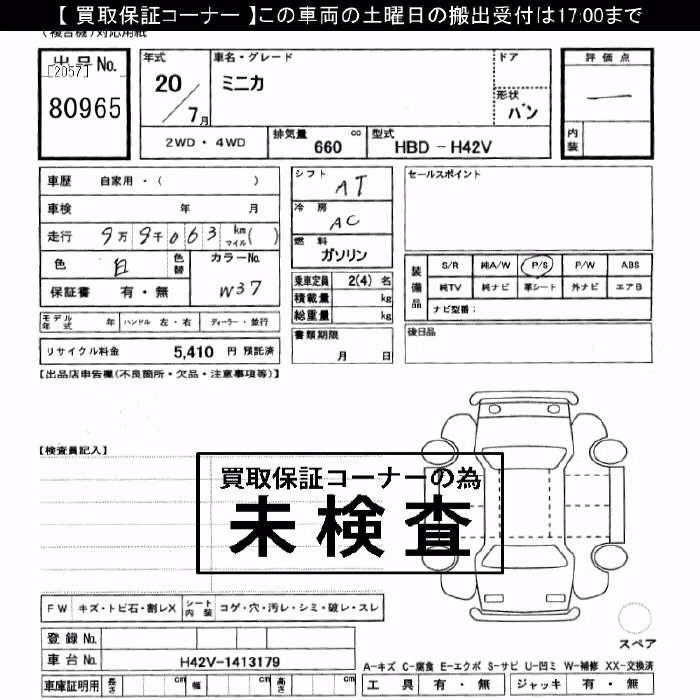 【 買取保証コーナー 】この車両の土曜日の搬出受付は17:00まで
(複合機)対応用紙
出品No.
[2057]
80965
年式
20 / 7月
車名・グレード
ミニカ
ドア
形状
バン
評価点
一
内装
2WD・4WD
排気量 660 cc
型式 HBD - H42V
車歴 自家用・( )
車検 年 月
走行 9万9千063 km マイル( )
色 白 色替
カラーNo. W37
保証書 有・無
シフト AT
冷房 AC
燃料 ガソリン
乗車定員 2(4) 名
積載量 kg
総重量 kg
セールスポイント
装備品
S/R 純A/W P/S P/W ABS
純TV 純ナビ 革シート 外ナビ エアB
ナビ型番:
モデル年式 年 ハンドル 左・右 ディーラー・並行
リサイクル料金 5,410 円 預託済
書類期限 月 日
後日品
【出品店申告欄(不良箇所・欠品・注意事項等)】
【検査員記入】
買取保証コーナーの為
未検査
FW キズ・トビ石・割レX シート内装 コゲ・穴・汚レ・シミ・破レ・スレ
登録No.
車台No. H42V-1413179
車庫証明用 長さ cm 幅 cm 高さ cm
スペア
A-キズ C-腐食 E-エクボ S-サビ U-凹ミ W-補修 XX-交換済
工具 有・無 ジャッキ 有・無